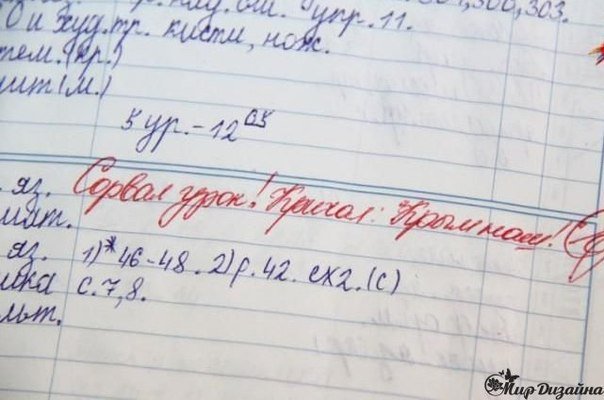 упр. 11.
О и худ. тр. кисти, нож.
5 ур. - 12 05
яз. Сорвал урок! Кричал: Крым наш!
мат.
яз. 1)*46-48. 2) р. 42. ex2. (с)
с. 7, 8.
Мир Дизайна